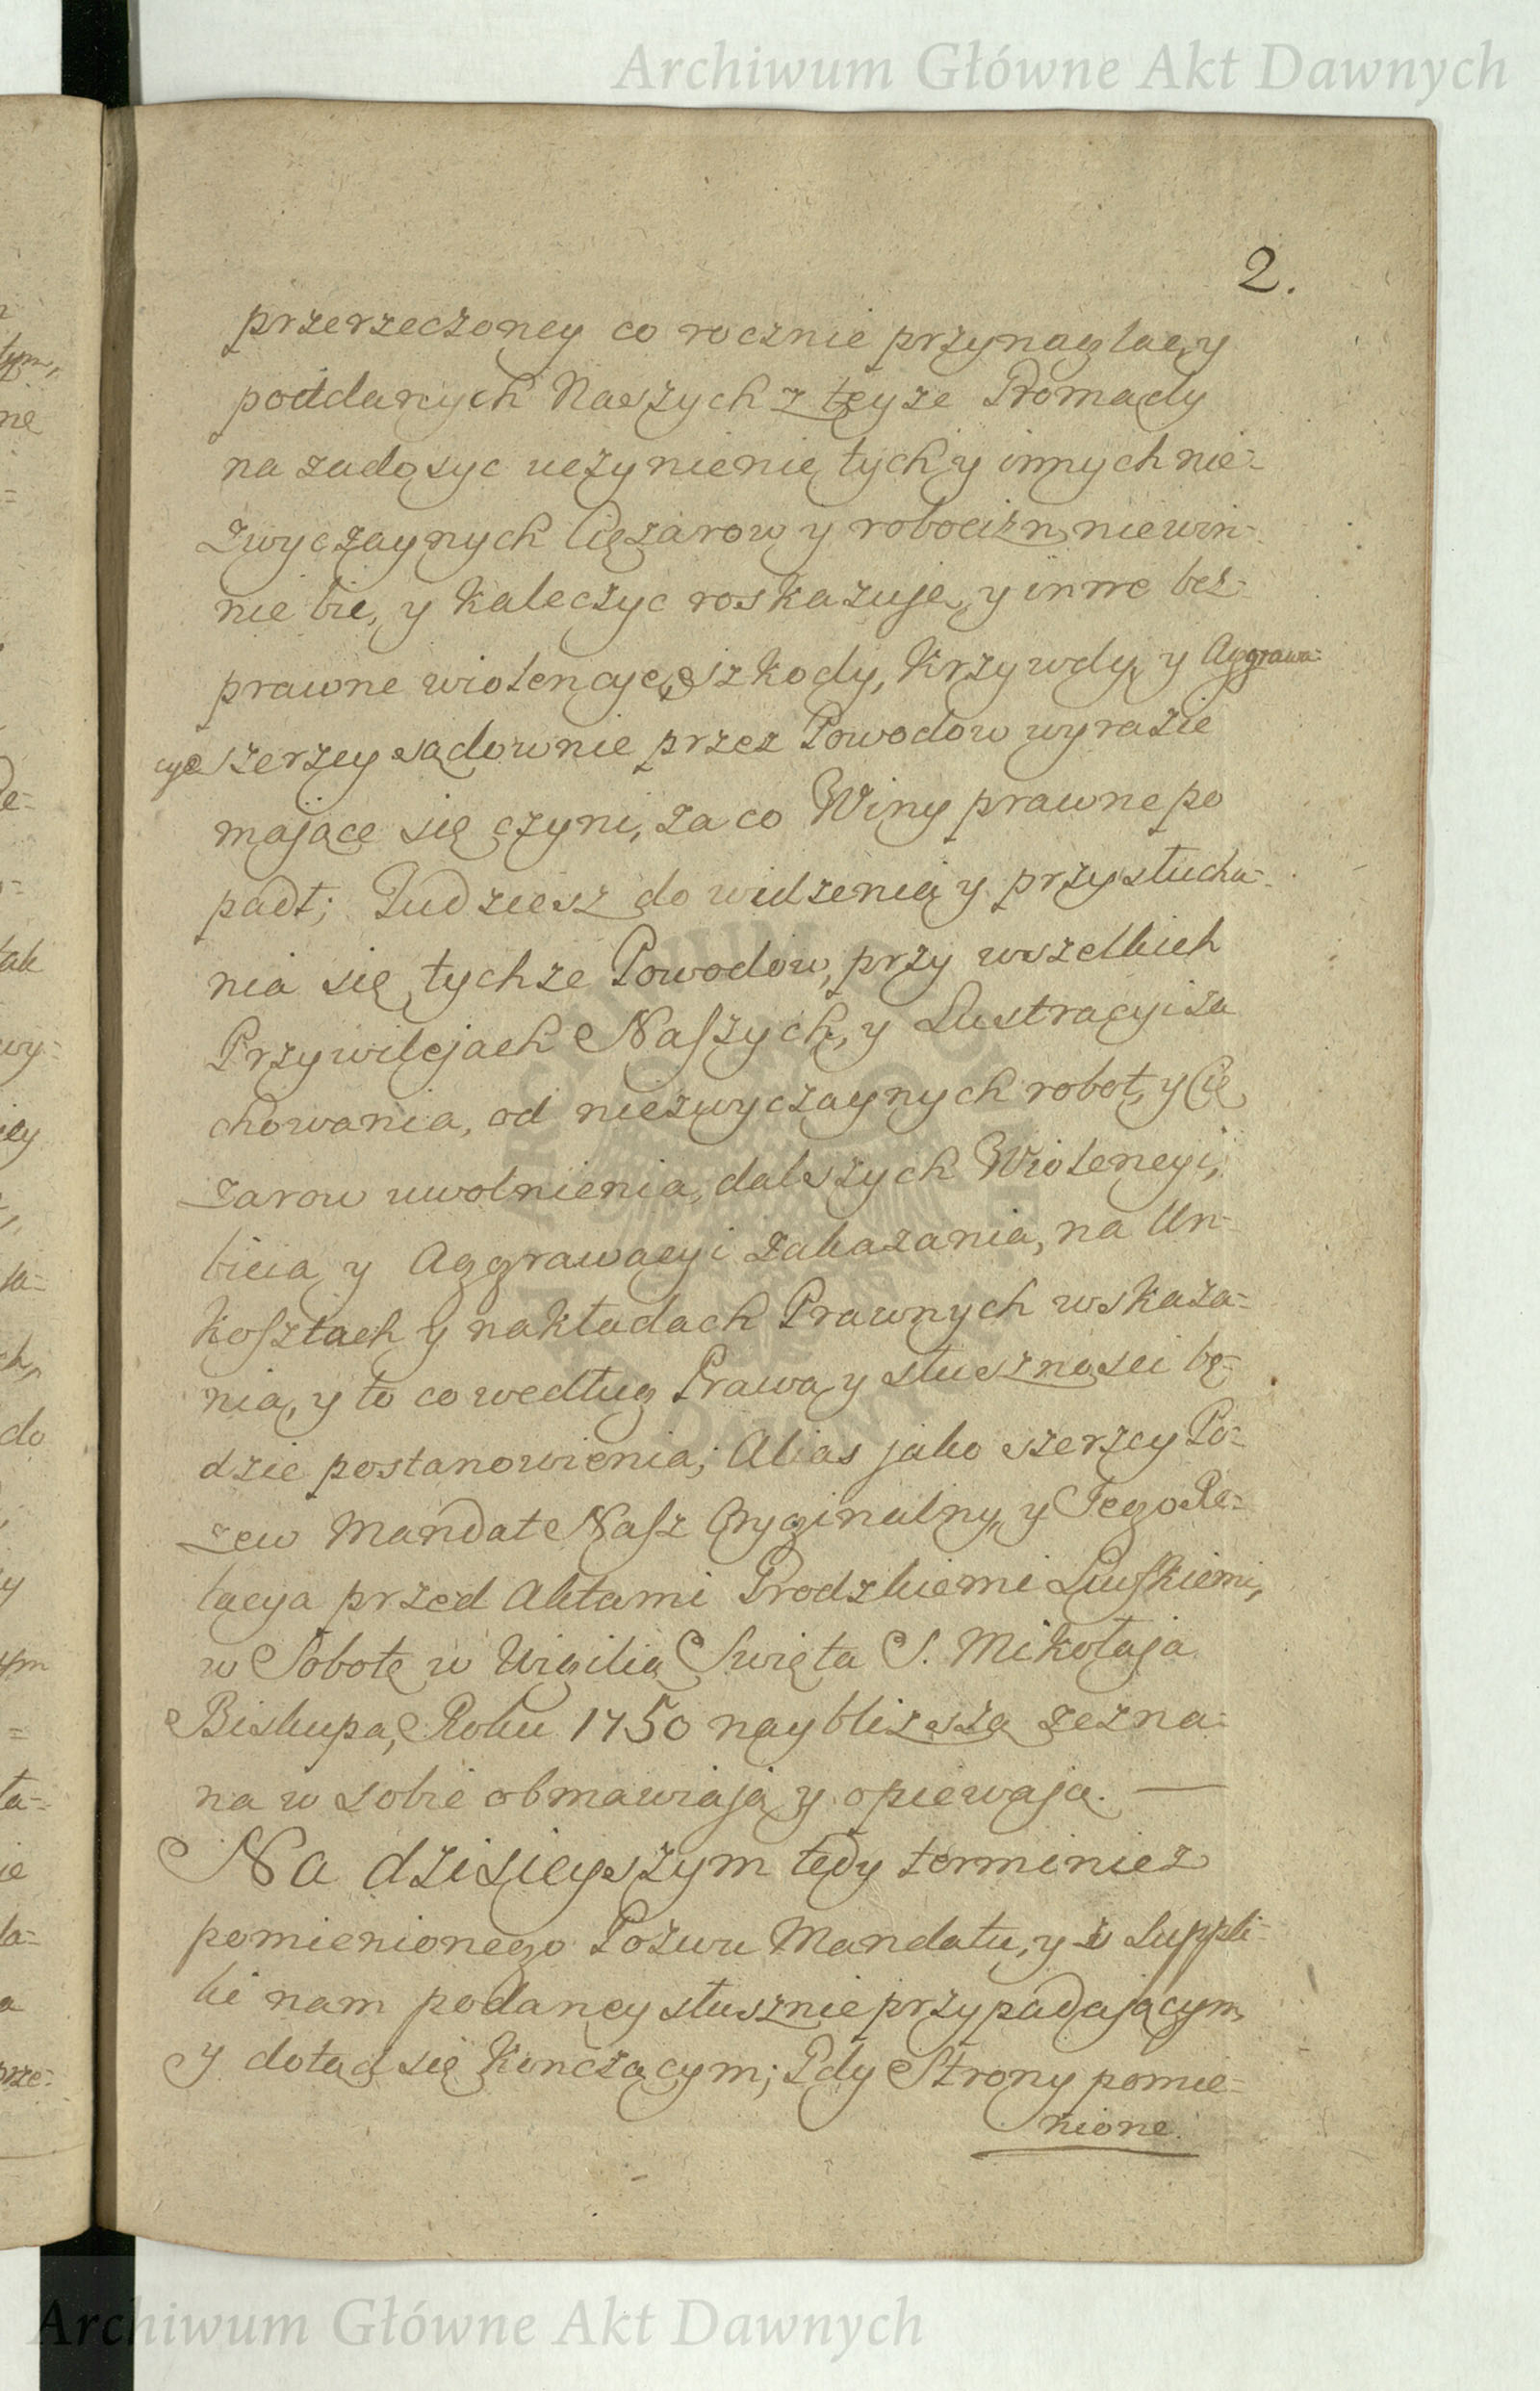 Archiwum Główne Akt Dawnych
2.
przerzeczoney co rocznie przynaglac, y
poddanych Naszych z teyze Gromady
na zadosyc uczynienie tych y innych nie=
zwyczaynych Cięzarow y robocizn, niewin=
nie bic, y kaleczyc roskazuje, y inne bez=
prawne wiolencye, szkody, Krzywdy, y Aggrawa=
cye szerzey sądownie przez Powodow wyrazic
mające się czyni, za co Winy prawne po
padł; Tudziesz do widzenia y przysłucha=
nia się tychze Powodow, przy wszelkich
Przywilejach Naszych, y Lustracyi za
chowania, od niezwyczaynych robot, y Cię
zarow uwolnienia, dalszych Wiolencyi,
bicia y Aggrawacyi zakazania, na Un=
kosztach y nakładach Prawnych wskaza=
nia, y to co według Prawa y słusznosci bę=
dzie postanowienia; Alias jako szerzey Po=
zew Mandat Nasz Oryginalny, y Tego Re=
lacya przed Aktami Grodzkiemi Liwskiemi,
w Sobotę w Wigilią Swięta S. Mikołaja
Biskupa, Roku 1750 naybliszszą zezna=
na w sobie obmawiają y opiewają. —
Na dzisieyszym tedy terminie z
pomienionego Pozwu Mandatu, y z Suppli=
ki nam podaney słusznie przypadającym
y dotąd się kończącym; Gdy Strony pomie=
nione.
ARCHIWUM GŁÓWNE AKT DAWNYCH
tym,
ne
tak
wy=
do
ym
ta=
ie
la=
a
prze=
Archiwum Główne Akt Dawnych